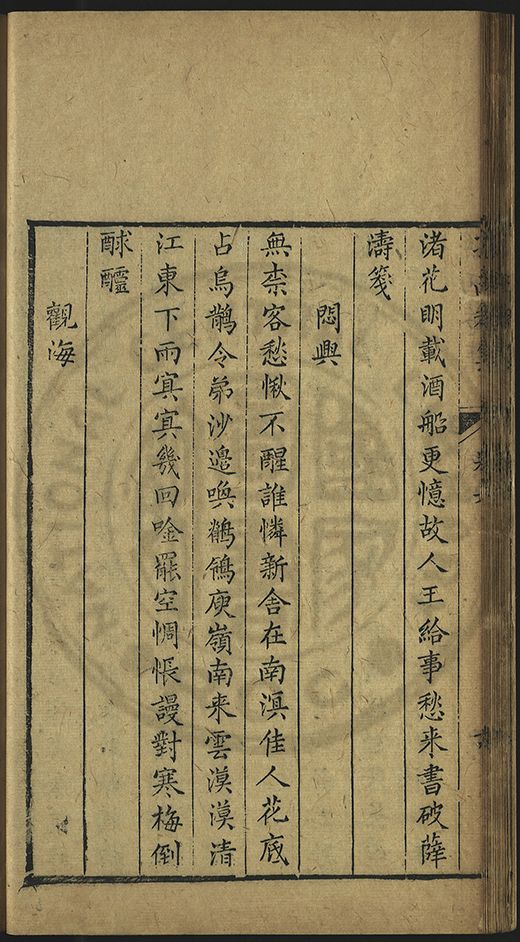 渚花明載酒船更憶故人王給事愁来書破薛
濤箋
悶興
無柰客愁愀不醒誰憐新舍在南溟佳人花底
占烏鵲令弟沙邉喚鶺鴒庾嶺南来雲漠漠清
江東下雨寘寘幾回唫罷空惆悵謾對寒梅倒
醁醽
觀海